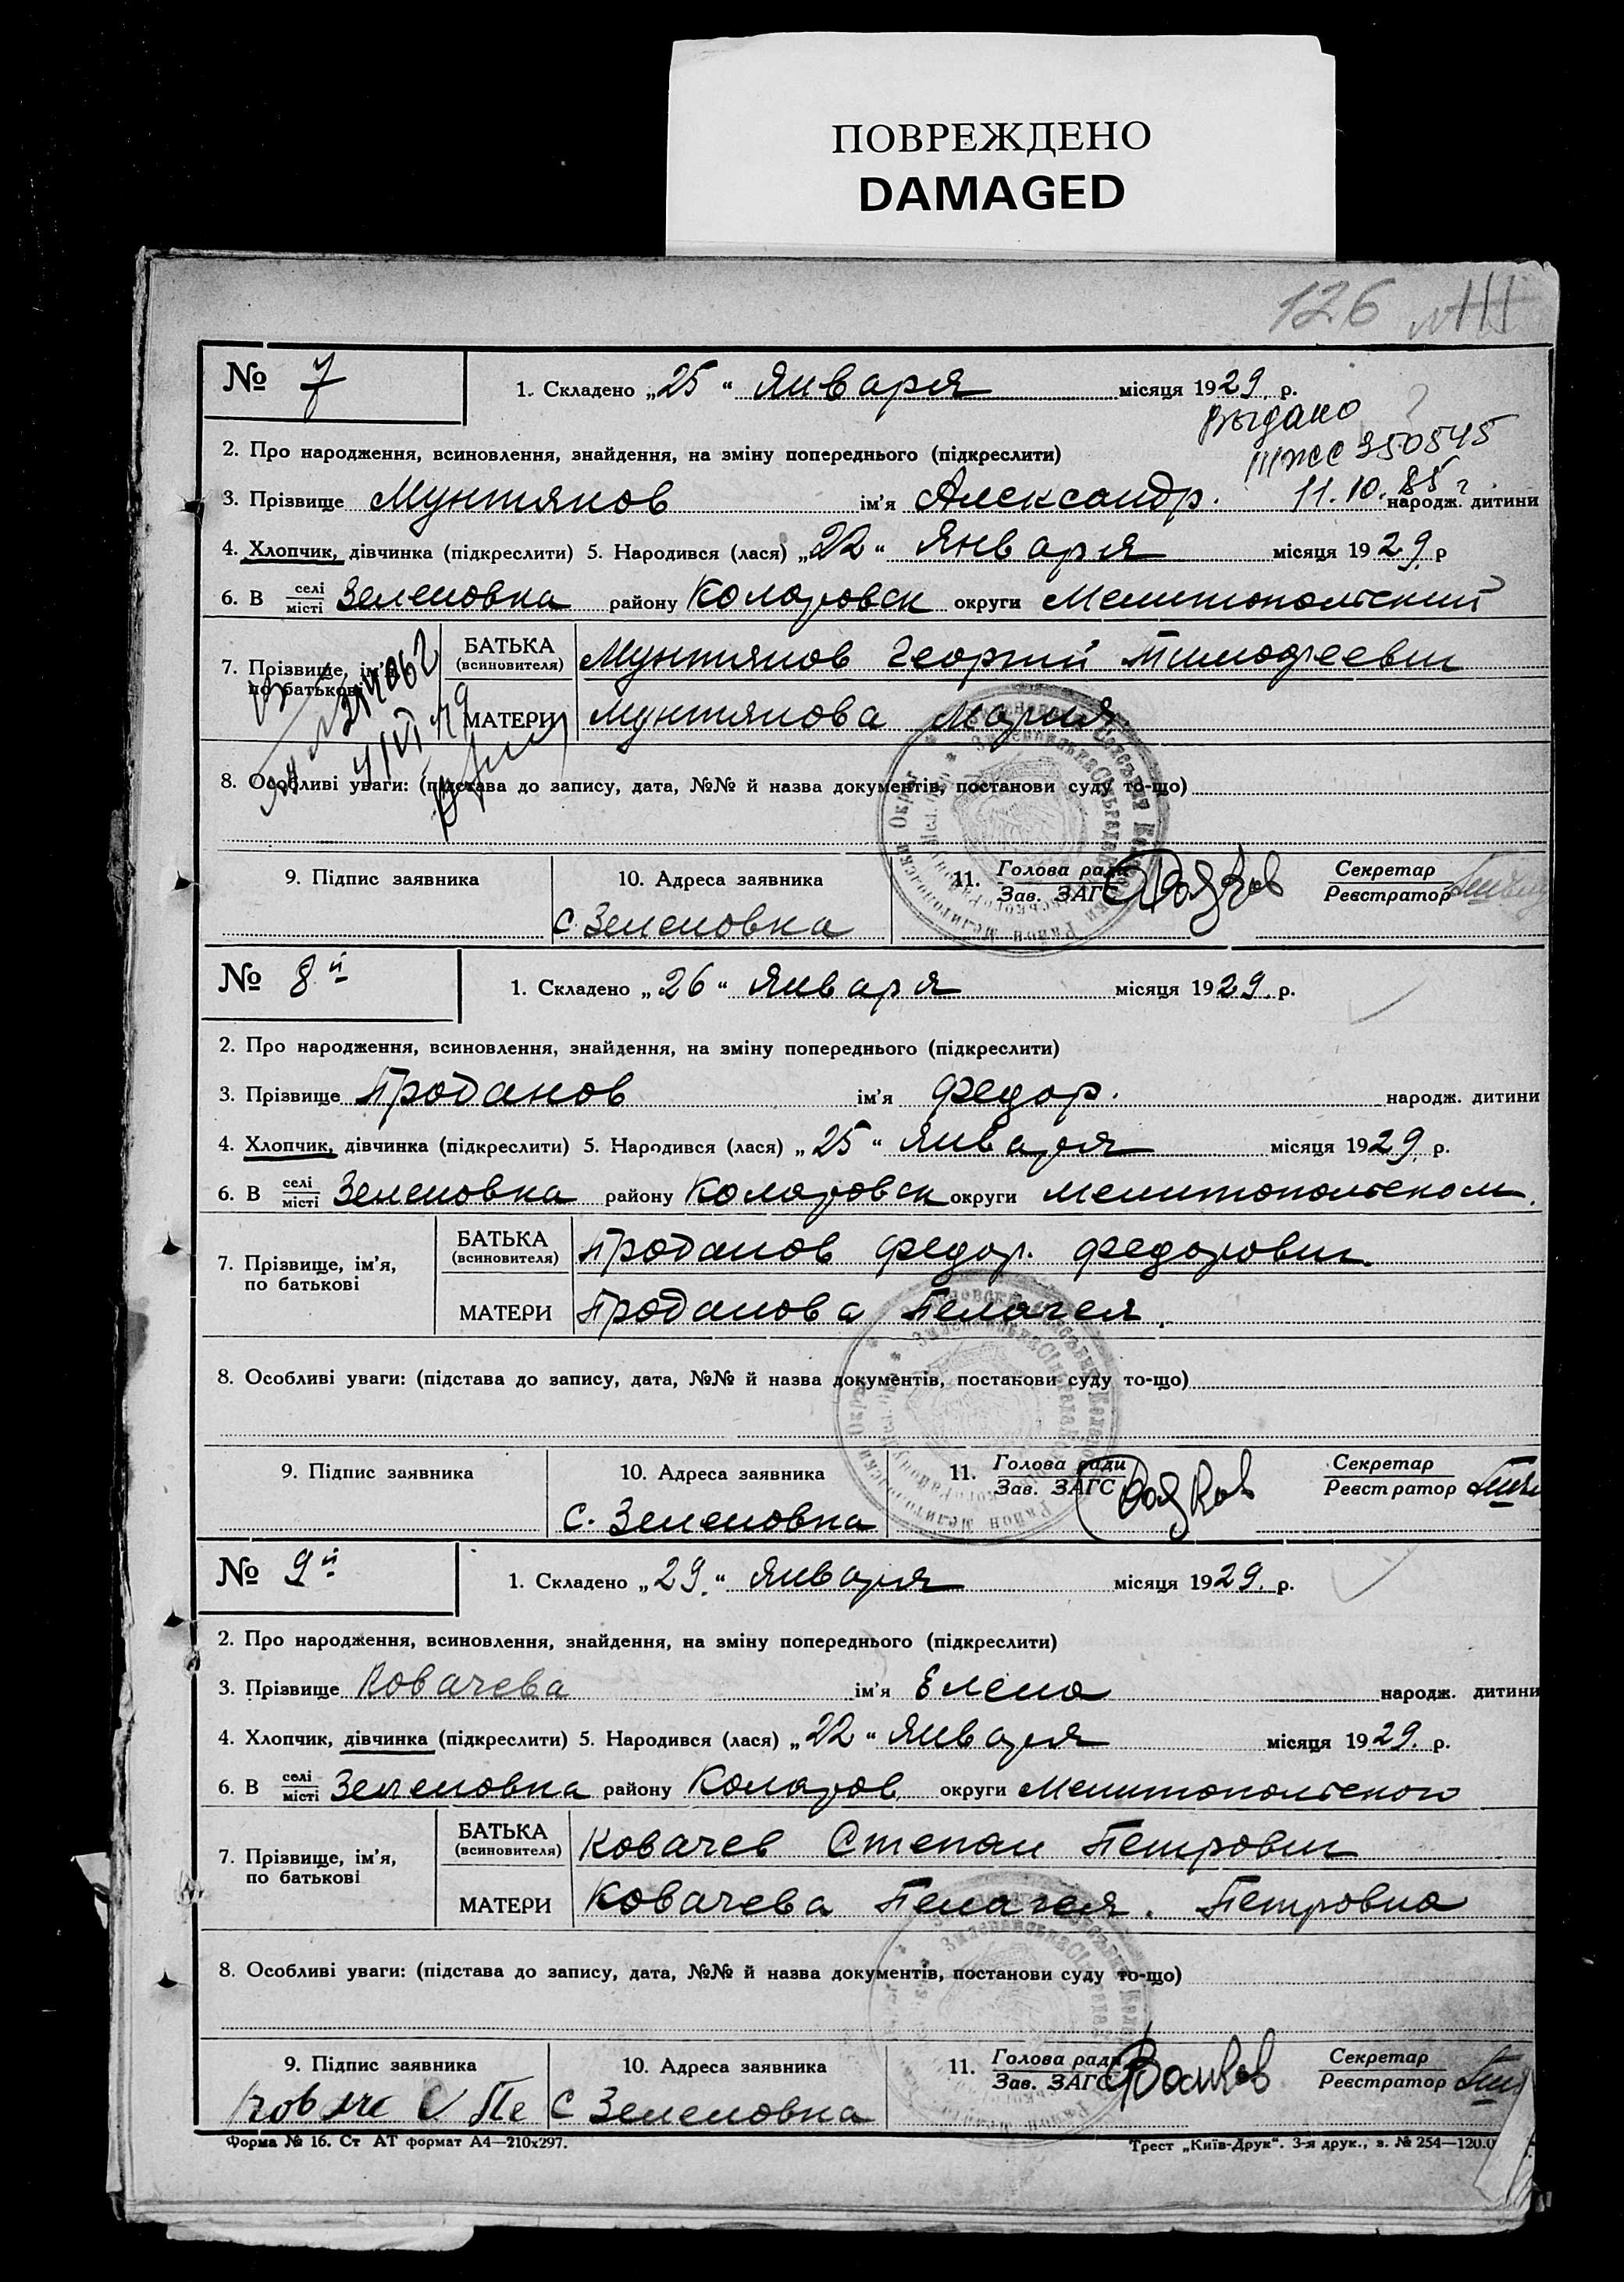 ПОВРЕЖДЕНО
DAMAGED
126
№ 7
1. Складено „25“ Января місяця 1929. р.
Выдано
III ЖС 350545
2. Про народження, всиновлення, знайдення, на зміну попереднього (підкреслити)
11.10.85 г
3. Прізвище Мунтянов ім'я Александр. народж. дитини
4. Хлопчик, дівчинка (підкреслити) 5. Народився (лася) „22“ Января місяця 1929. р
6. В селі місті Зеленовка району Коларовск округи Мелитопольский
7. Прізвище, ім'я, по батькові
БАТЬКА (всиновителя) Мунтянов Георгий Тимофеевич
МАТЕРИ Мунтянова Мария
8. Особливі уваги: (підстава до запису, дата, №№ й назва документів, постанови суду то-що)
9. Підпис заявника
10. Адреса заявника
11. Голова ради Зав. ЗАГС
Секретар Реєстратор
с. Зеленовка
№ 8й
1. Складено „26“ Января місяця 1929. р.
2. Про народження, всиновлення, знайдення, на зміну попереднього (підкреслити)
3. Прізвище Проданов ім'я Федор. народж. дитини
4. Хлопчик, дівчинка (підкреслити) 5. Народився (лася) „25“ Января місяця 1929. р.
6. В селі місті Зеленовка району Коларовск округи Мелитопольском.
7. Прізвище, ім'я, по батькові
БАТЬКА (всиновителя) Проданов Федор. Федорович.
МАТЕРИ Проданова Пелагея.
8. Особливі уваги: (підстава до запису, дата, №№ й назва документів, постанови суду то-що)
9. Підпис заявника
10. Адреса заявника
11. Голова ради Зав. ЗАГС
Секретар Реєстратор
с. Зеленовка
№ 9й
1. Складено „29.“ Января місяця 1929. р.
2. Про народження, всиновлення, знайдення, на зміну попереднього (підкреслити)
3. Прізвище Ковачева ім'я Елена народж. дитини
4. Хлопчик, дівчинка (підкреслити) 5. Народився (лася) „22“ Января місяця 1929. р.
6. В селі місті Зеленовка району Коларов. округи Мелитопольского
7. Прізвище, ім'я, по батькові
БАТЬКА (всиновителя) Ковачев Степан Петрович
МАТЕРИ Ковачева Пелагея. Петровна
8. Особливі уваги: (підстава до запису, дата, №№ й назва документів, постанови суду то-що)
9. Підпис заявника
10. Адреса заявника
11. Голова ради Зав. ЗАГС
Секретар Реєстратор
с Зеленовка
Форма № 16. Ст АТ формат А4—210х297.
Трест „Київ-Друк“. 3-я друк., з. № 254—120.0